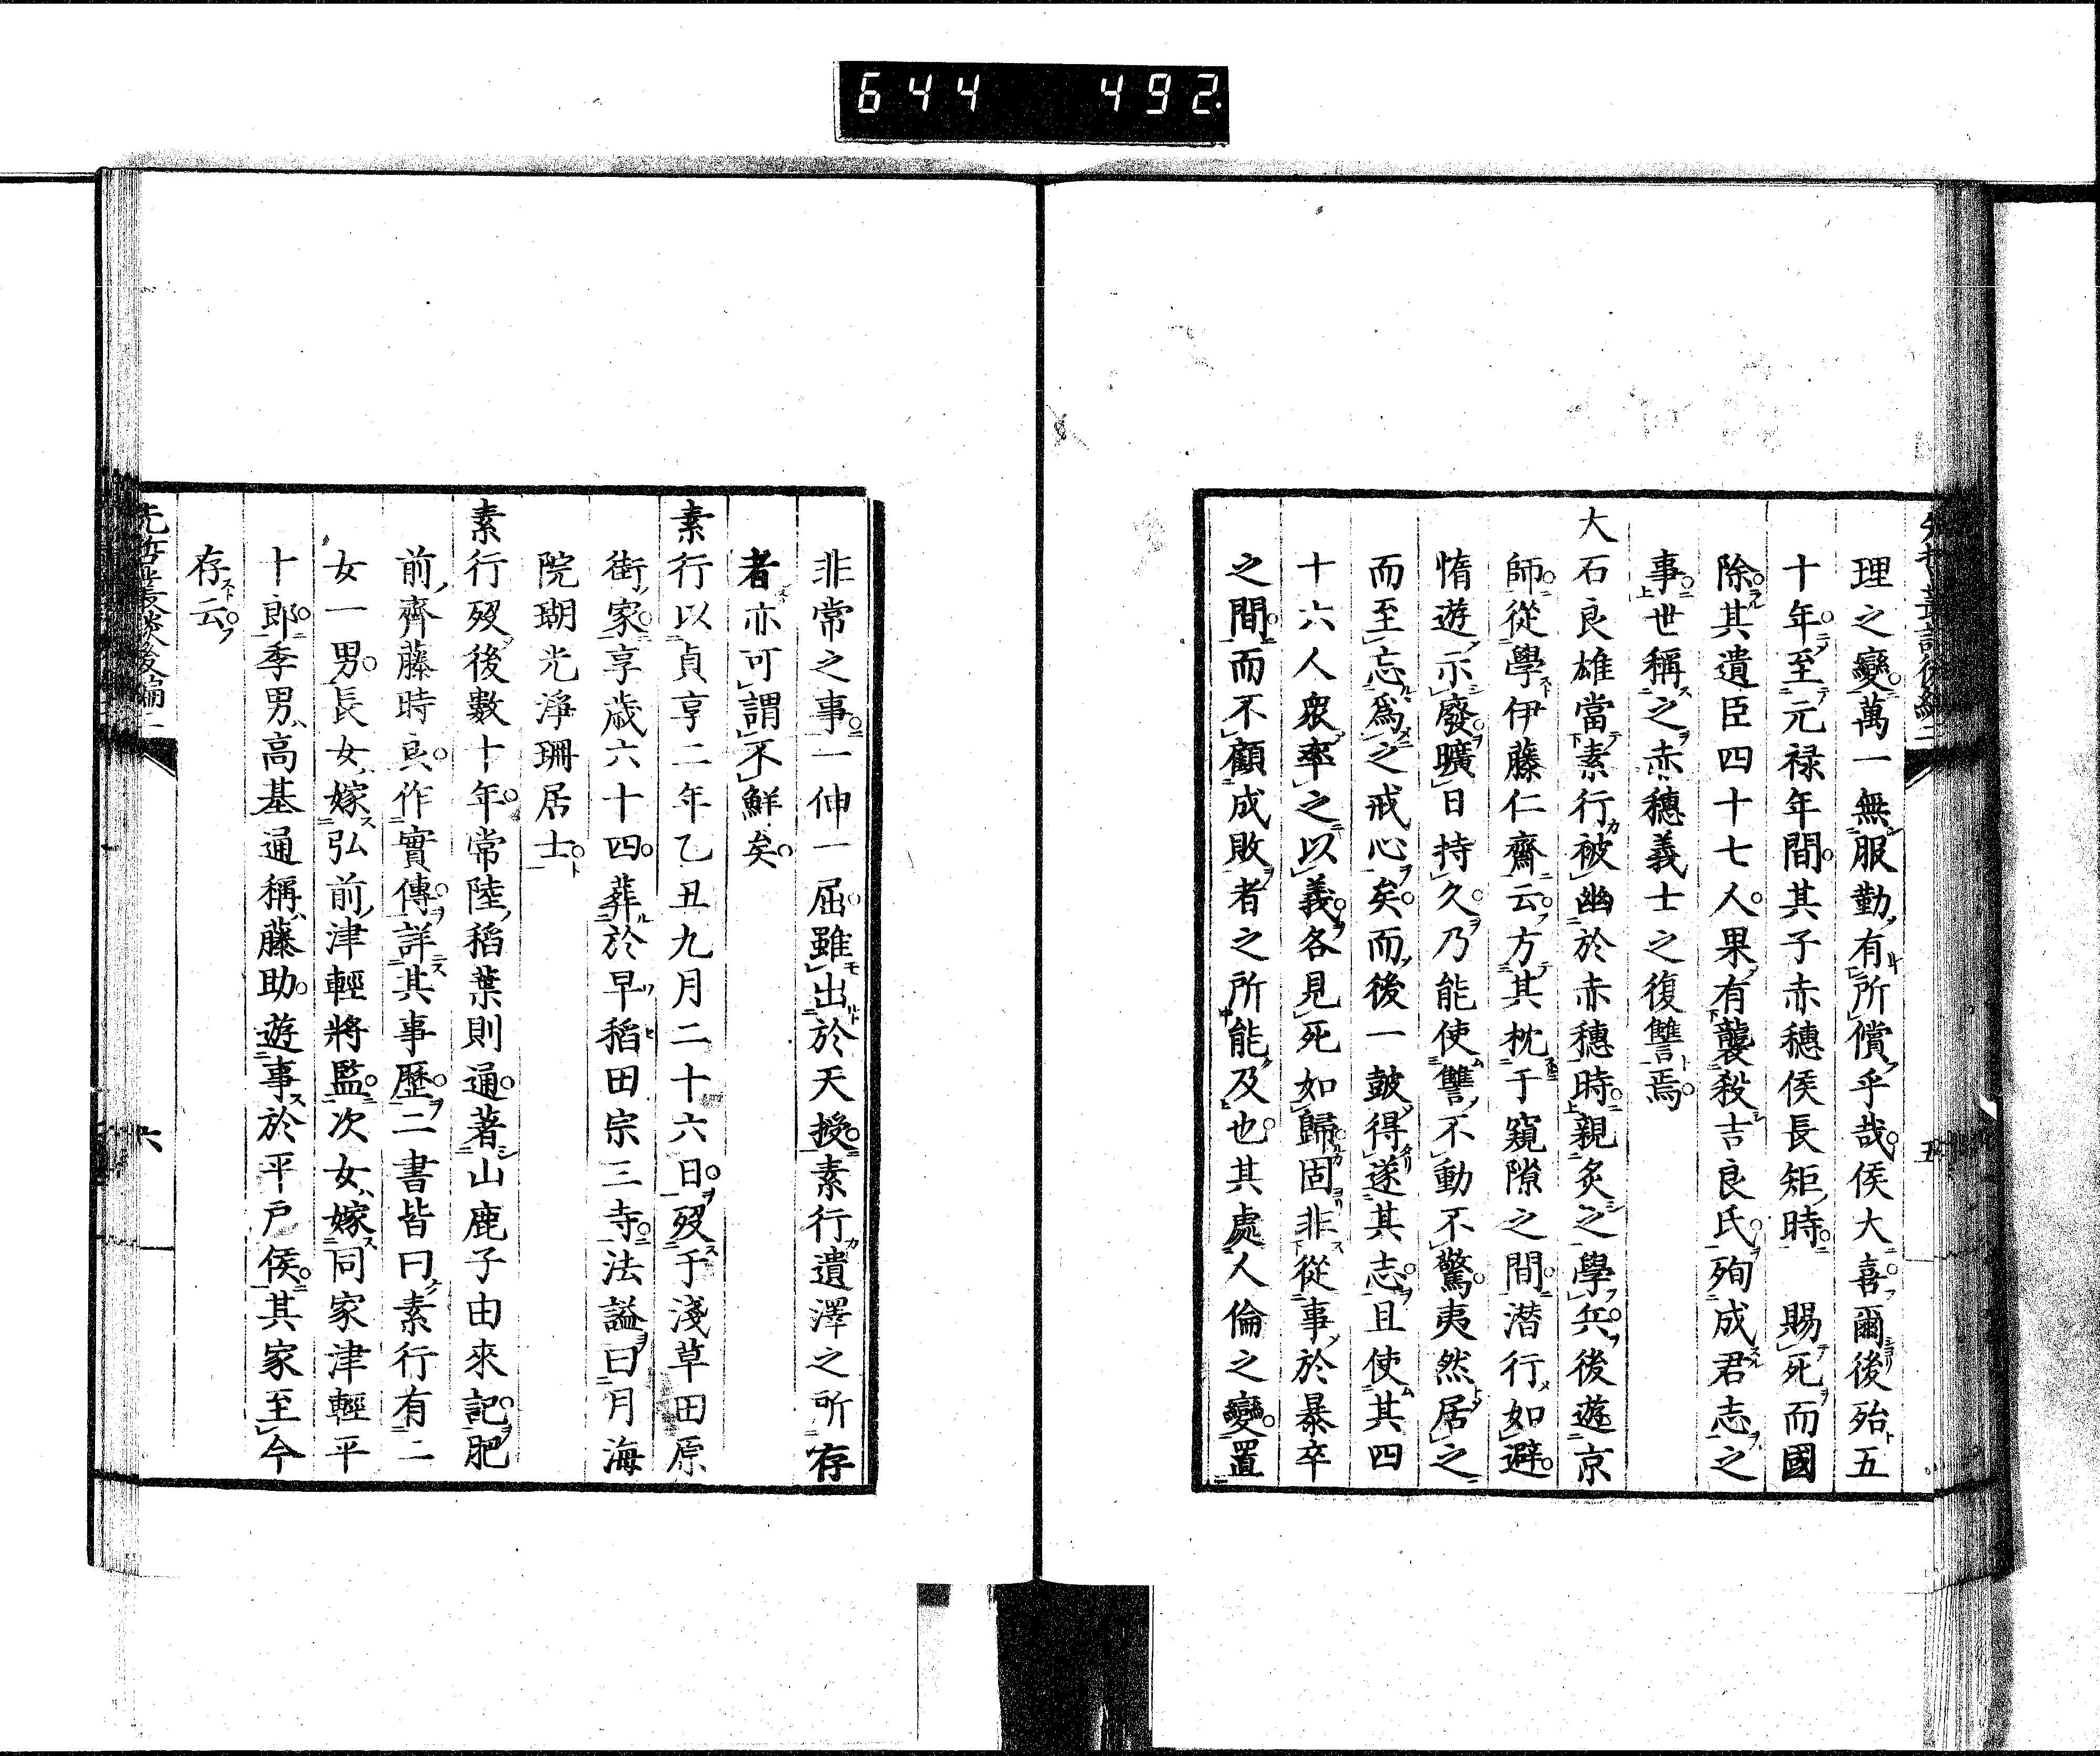 644 492
理之變萬一無服勤有所償乎哉侯大喜爾後殆五
十年至元禄年間其子赤穗侯長矩時 賜死而國
除其遺臣四十七人果有襲殺吉良氏殉成君志之
事世稱之赤穗義士之復讐焉
大石良雄當素行被幽於赤穗時親炙之學兵後遊京
師從學伊藤仁齋云方其枕于窺隙之間潜行如避
惰遊示廢曠日持久乃能使讐不動不驚夷然居之
而至忘爲之戒心矣而後一鼓得遂其志且使其四
十六人衆率之以義各見死如歸固非從事於暴卒
之間而不顧成敗者之所能及也其處人倫之變置
非常之事一伸一屈雖出於天授素行遺澤之所存
者亦可謂不鮮矣
素行以貞亨二年乙丑九月二十六日歿于淺草田原
街家享歳六十四葬於早稻田宗三寺法謚曰月海
院瑚光淨珊居士
素行歿後數十年常陸稻葉則通著山鹿子由來記肥
前齊藤時良作實傳詳其事歷二書皆曰素行有二
女一男長女嫁弘前津輕將監次女嫁同家津輕平
十郎季男高基通稱藤助遊事於平戸侯其家至今
存云
先哲叢談後編二
六